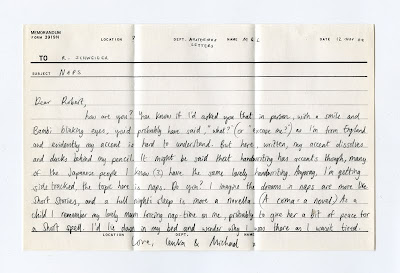 MEMORANDUM
FORM 39151
LOCATION DEPT. ANONYMOUS LETTERS NAME DATE 12 NOV 09
TO R. ZEHWEIGER
SUBJECT NAPS
Dear Robert,
how are you? You know if I'd asked you that in person, with a smile and
Bambi blinking eyes, you'd probably have said, "what?" (or "excuse me?") as I'm from England
and evidently my accent is hard to understand. But here, written, my accent dissolves
and ducks behind my pencil. It might be said that handwriting has accents though, many
of the Japanese people I know (2) have the same lovely handwriting. Anyway, I'm getting
side tracked, the topic here is naps. Do you? I imagine the dreams in naps are more like
Short Stories, and a full night's sleep is more a novella. (A coma = a novel) As a
child I remember my lovely Mum forcing nap-time on me, probably to give her a bit of peace for
a short spell. I'd lie down in my bed and wonder why I was there as I wasn't tired.
LOCATION DEPT. NAME
Love, & Michael